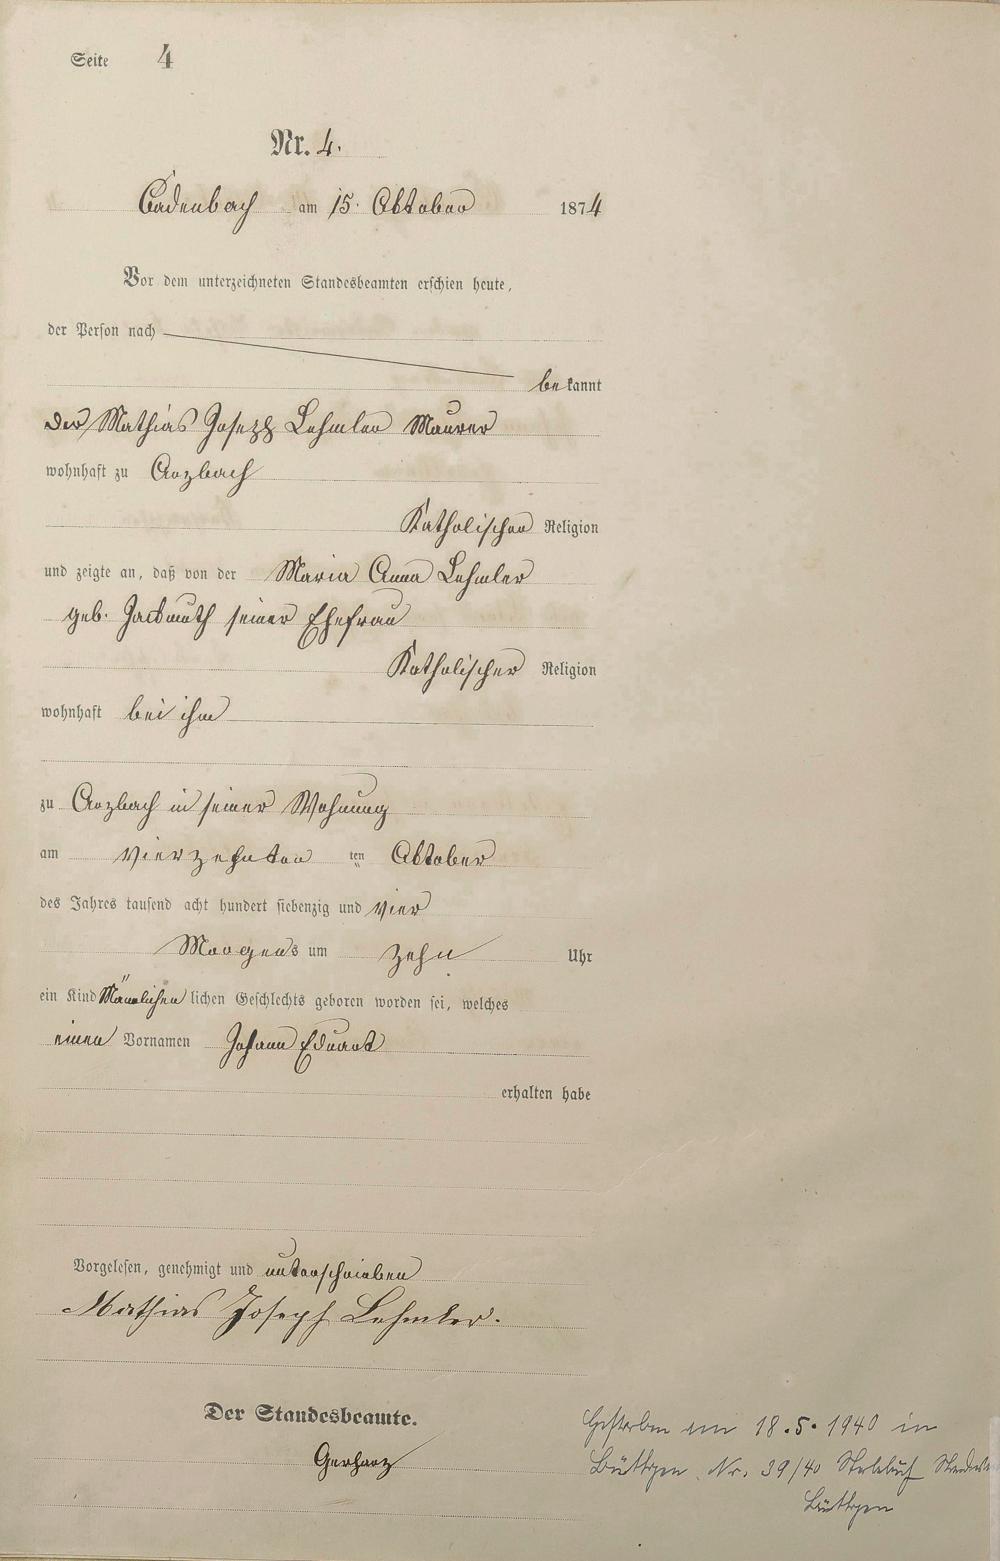 Seite 4
Nr. 4.
Cadenbach am 15. Oktober 1874
Vor dem unterzeichneten Standesbeamten erschien heute,
der Person nach
bekannt
der Mathias Joseph Lehmler Maurer
wohnhaft zu Arzbach
Katholischer Religion
und zeigte an, daß von der Maria Anna Lehmler
geb. Jackmuth seiner Ehefrau
Katholischer Religion
wohnhaft bei ihm
zu Arzbach in seiner Wohnung
am vierzehnten ten Oktober
des Jahres tausend acht hundert siebenzig und vier
Morgens um zehn Uhr
ein Kind Mänlichen lichen Geschlechts geboren worden sei, welches
einen Vornamen Johann Eduard
erhalten habe
Vorgelesen, genehmigt und unterschrieben
Mathias Joseph Lehmler.
Der Standesbeamte.
Gerharz
Gestorben am 18.5.1940 in
Büttgen Nr. 39/40 Sterbebuch
Büttgen